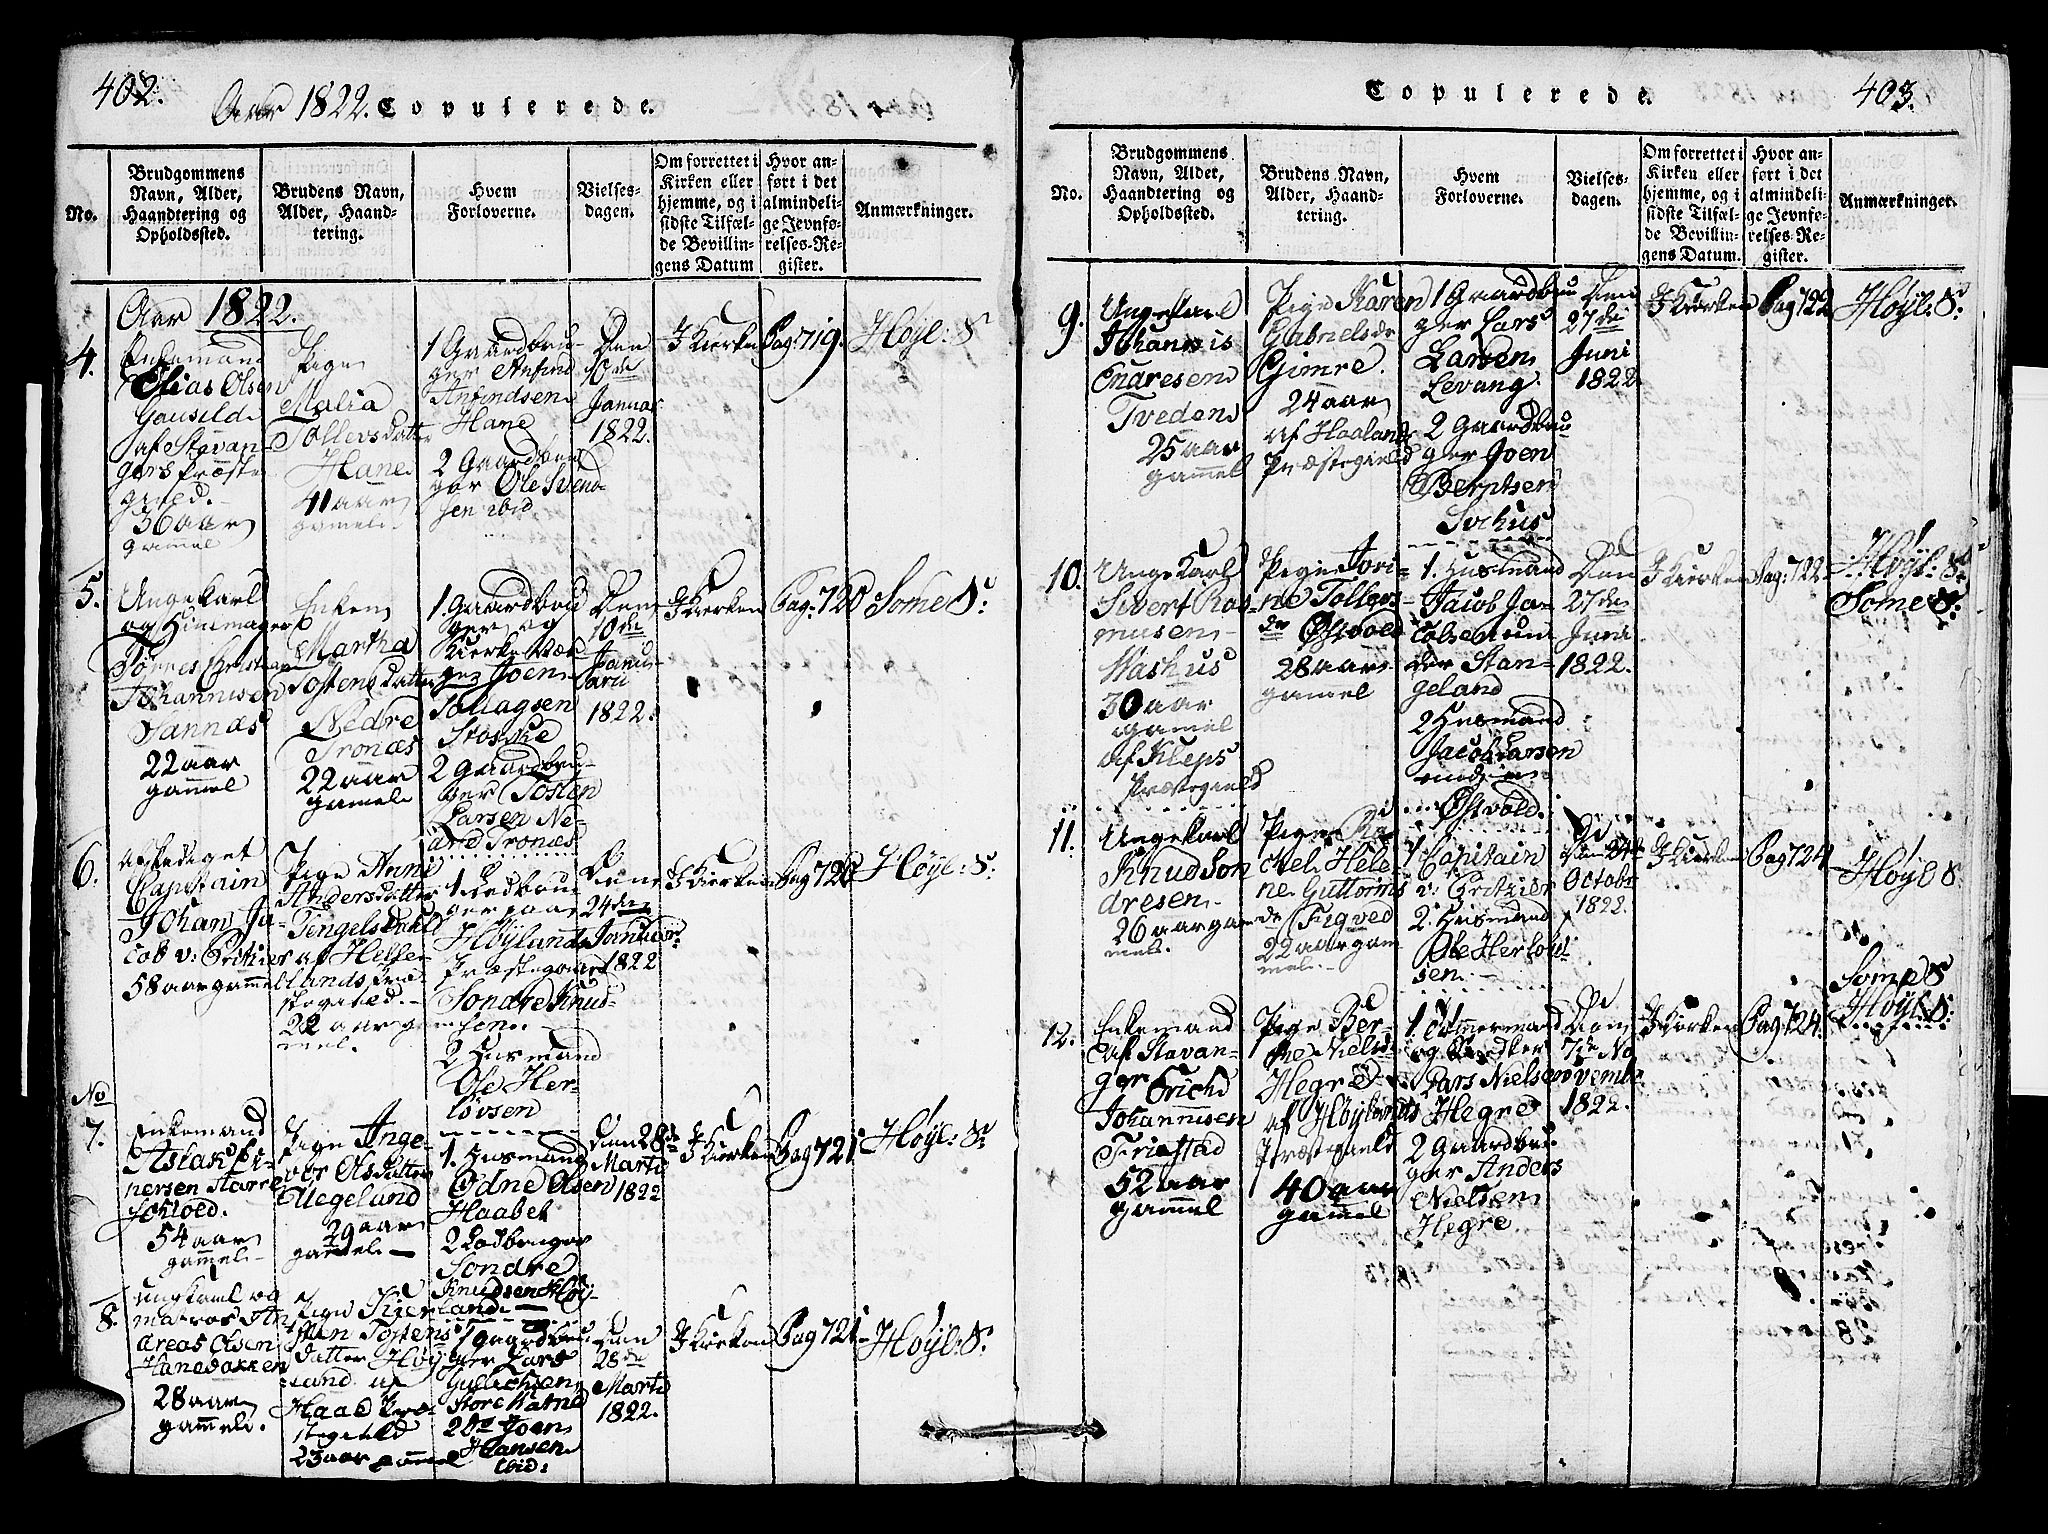 402.
Aar 1822. Copulerede.
No.
Brudgommens
Navn, Alder,
Haandtering og
Opholdssted.
Brudens Navn,
Alder, Haand-
tering.
Hvem
Forloverne.
Vielses-
dagen.
Om forrettet i
Kirken eller
hjemme, og i
sidste Tilfæl-
de Bevillin-
gens Datum
Hvor an-
ført i det
almindeli-
ge Jevnfø-
relses-Re-
gister.
Anmærkninger.
Aar 1822.
4.
Enkemand
Elias Olsen
Gausild
af Stavan-
gers Præste
gield.
36 aar
gammel
Pige
Malia
Tollevsdatter
Hane
41 aar
gamel.
1 Gaardbru-
ger Anfind
Anfindsen
Hane
2 Gaardbru
ger Ole Svend-
sen ibid
Den
10de
Januar
1822.
I Kierken
Pag: 719.
Høyl: S
5.
Ungekarl
og
Tønnes Christian
Johannisen
Sannæs
22 aar
gammel
Enken
Martha
Tostens datter
Nedre
Tronæs
22 aar
gamel
1. Gaardbru
ger og
Kierke Vær-
ger Joen
Stoske
2 Gaardbru-
ger Tosten
Larsen Ne-
dre Tronæs
Den
10de
Janu-
arii
1822.
I Kierken
Pag: 720
Some S:
6.
afskediget
Capitain
Johan Ja-
cob v: Critzier
58 aar gammel
Pige Anne
Anders datter
Tengelsdahl
af Helle-
lands Præ-
stegield.
22 aar gam
mel.
1. Ledbru
ger paa
Høylunds
Præstegaard
Sondre Knud-
sen.
2 Husmand
Ole Her-
løvsen
Den
24de
Januar
1822
I Kierken
Pag 720
Høyl: S:
No
7.
Enkemand
Aslak
persen Starre
54 aar
gammel
Pige Ange-
ber Olsdatter
Uegeland
29 aar
gamel
1. Husmand
Odne Olsen
Haabet
2 Lodbruger
Sondre
Knudsen Høy-
land
Den 28de
Marti
1822
I Kierken
Pag 721
Høyl: S:
8.
ungkarl og
matros An-
dreas Olsen
Hanebakken
28 aar
gammel.
Pige Kier-
sten Tostens
datter Høy-
land af
Haae Præ-
stegield
23 aar gammel
1 gaardbru
ger Lars
Gulichsen
Store Katne
2de Joen
Hansen
ibid:
Den
28de
Marti
1822.
I Kierken
Pag 721
Høyl: S:
Copulerede.
403.
No.
Brudgommens
Navn, Alder,
Haandtering og
Opholdssted.
Brudens Navn,
Alder, Haand-
tering.
Hvem
Forloverne.
Vielses-
dagen.
Om forrettet i
Kirken eller
hjemme, og i
sidste Tilfæl-
de Bevillin-
gens Datum.
Hvor an-
ført i det
almindeli-
ge Jevnfø-
relses-Re-
gister.
Anmærkninger.
9.
Ungekarl
Johannis
Endresen
Tveden
25 aar
gammel
Pige Karen
Gabrielsdr
Gimre.
24 aar
af Haaland
Præstegield
1 Gaardbru
ger Lars
Larsen
Levang.
2 Gaardbru
ger Joen
Berntsen
Sorhus
Den
27de
Juni
1822
I Kierken
Pag 722
Høyl: S:
10.
Unge Karl
Sivert Ras-
musen
Washus
30 aar
gamel
af Kleps
Præstegield
Pige Jori-
ne Tollevs-
dr Østvold
28 aar
gamel
1. Husmand
Jacob Ja-
cobsen un
der Stan-
geland
2 Husmand
Jacob Larsen
under
Østvold.
Den
27de
Juni
1822.
I Kierken
Pag: 722
Høyl: S:
Some S:
11.
Ungekarl
Knud Son
dresen
26 aar gam
mel.
Pige Ra-
chel Hele-
ne Guttorms
dr Figved
22 aar gam
mel.
1 Capitain
v: Critzier
2. Husmand
Ole Herløv-
sen.
Den 24de
Octobr
1822.
I Kierken
Pag 724
Høyl S
12.
Enkemand
af Stavan-
ger Erich
Johannisen
Friestad
52 aar
gammel
Pige Ber-
the Nielsdr
Hegre
af Høylands
Præstegield
40 aar
gammel
1. Tømmermand
og
Lars Nielsen
Hegre
2 Gaardbru
ger Anders
Nielsen
Hegre.
Den
7de No
vembr
1822.
I Kierken
Pag: 724.
Some S
Høyl: S: